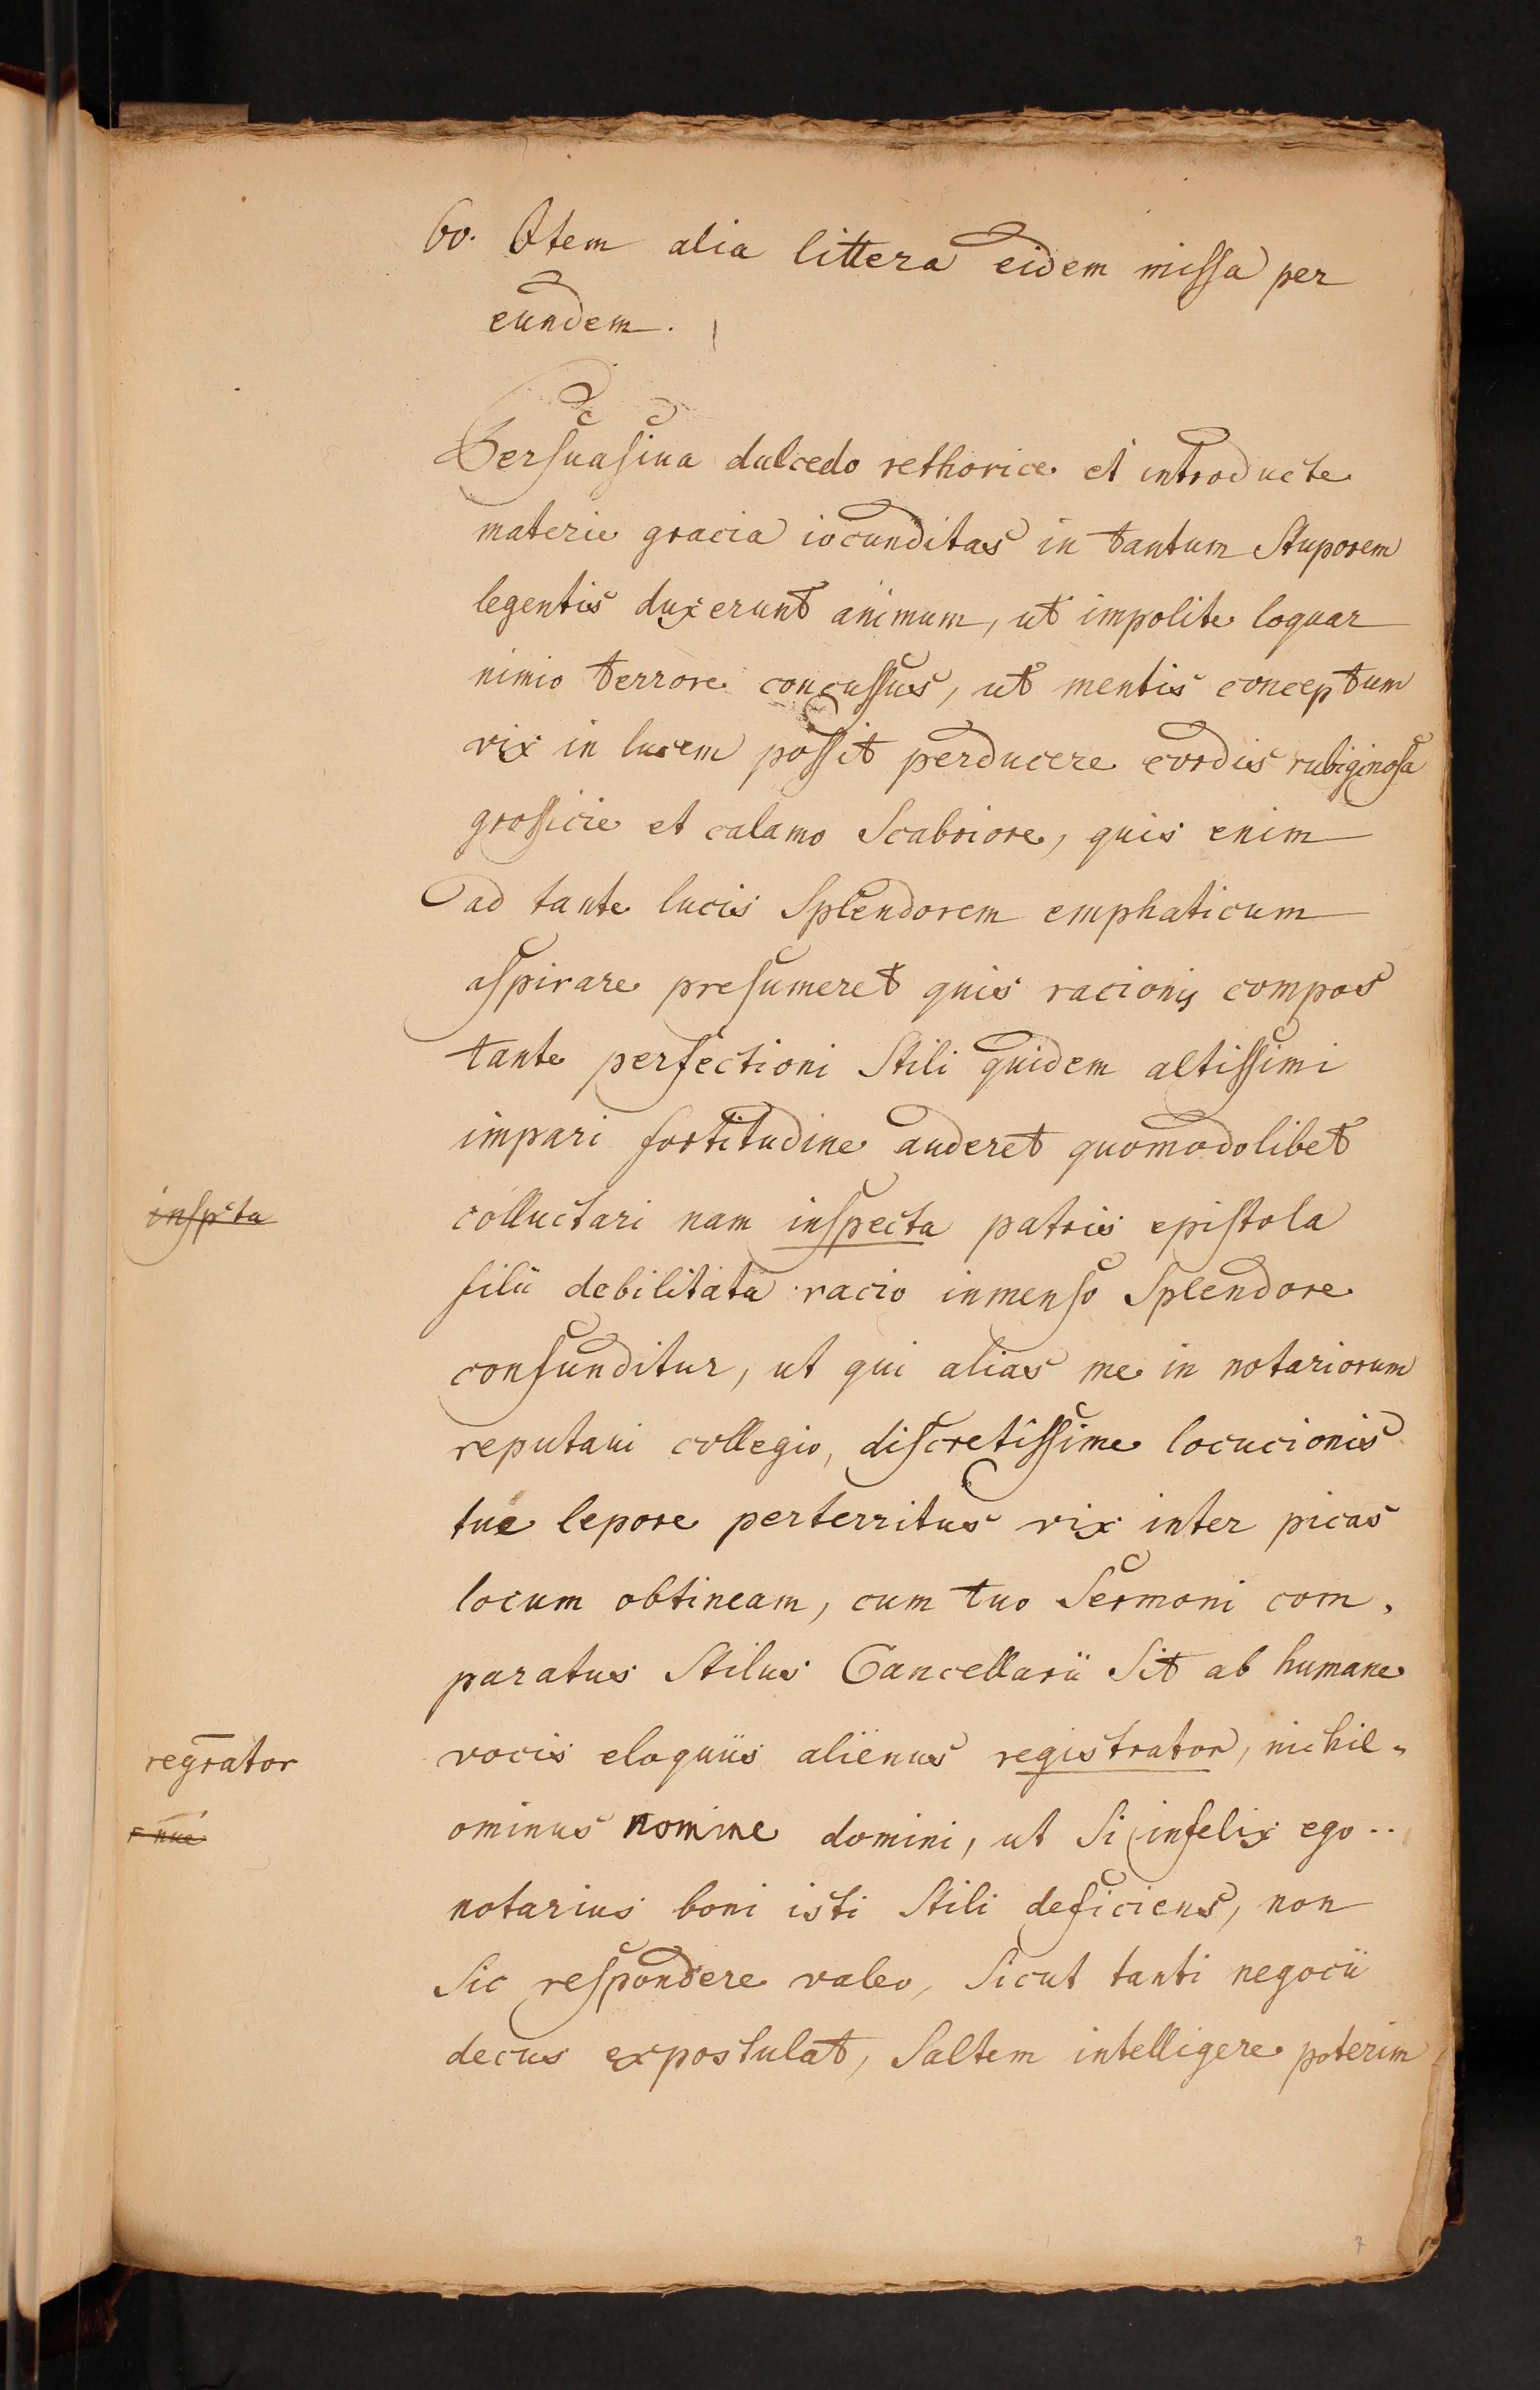 60. Item alia littera eidem missa per
eundem.
Persuasiua dulcedo rethorice et introducte
materie gracia iocunditas in tantum Stuporem
legentis duxerunt animum, ut impolite loquar
nimio terrore concussus, ut mentis conceptum
vix in lucem possit perducere cordis rubiginosa
grossicie et calamo Scabriore, quis enim
ad tante lucis Splendorem emphaticum
aspirare presumeret quis racionis compos
tante perfectioni Stili quidem altissimi
impari fortitudine auderet quomodolibet
inspcta
colluctari nam inspecta patris epistola
filii debilitata racio inmenso Splendore
confunditur, ut qui alias me in notariorum
reputaui collegio, discretissime locucionis
tue lepore perterritus vix inter picas
locum obtineam, cum tuo Sermoni com,
paratus Stilus Cancellarii Sit ab humane
regrator
vocis eloquiis alienus registrator, nichil-
ominus nomine domini, ut Si infelix ego ..
notarius boni isti Stili deficiens, non
Sic respondere valeo, Sicut tanti negocii
decus expostulat, Saltem intelligere poterim
7